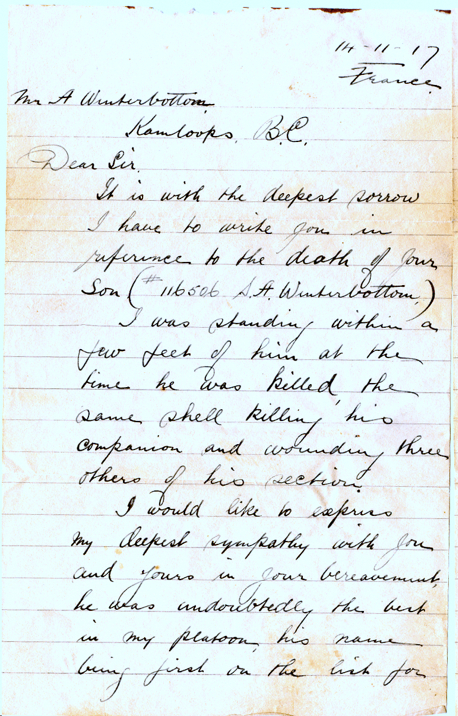 14-11-17
France.
Mr A Winterbottom
Kamloops. B.C.
Dear Sir.
It is with the deepest sorrow
I have to write you in
reference to the death of your
Son (# 116506 S.A. Winterbottom)
I was standing within a
few feet of him at the
time he was killed, the
same shell killing his
companion and wounding three
others of his section.
I would like to express
my deepest sympathy with you
and yours in your bereavement,
he was undoubtedly the best
in my platoon, his name
being first on the list for